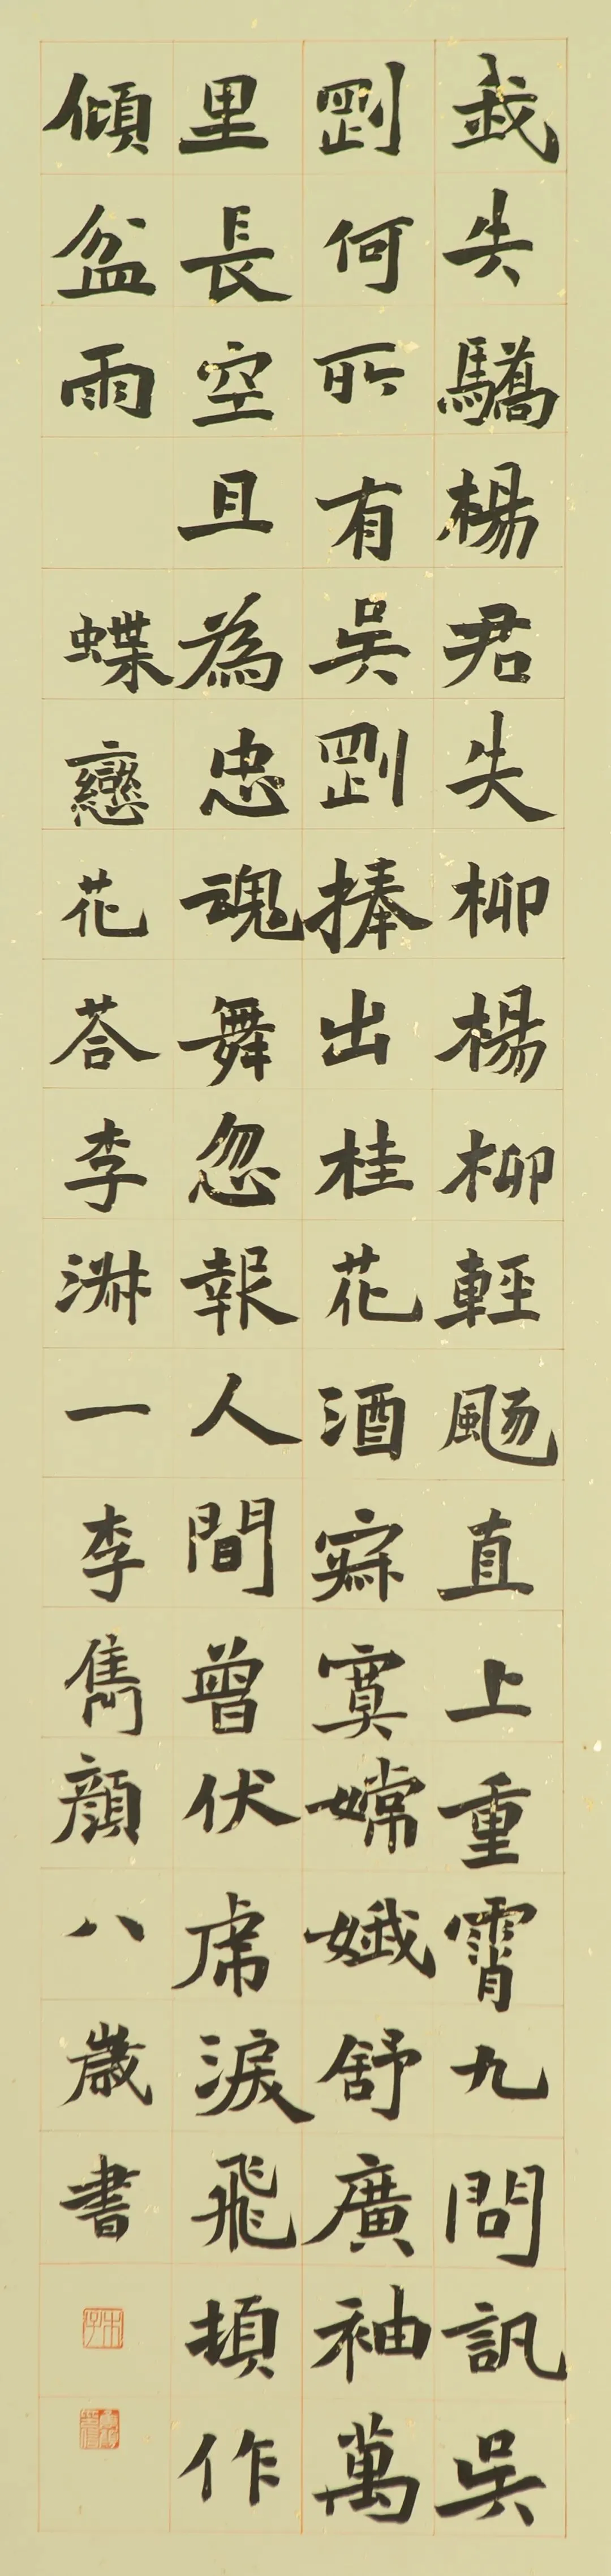 我失驕楊君失柳楊柳輕颺直上重霄九問訊吳
剛何所有吳剛捧出桂花酒寂寞嫦娥舒廣袖萬
里長空且為忠魂舞忽報人間曾伏虎淚飛頓作
傾盆雨 蝶戀花荅李淑一李雋顏八歲書